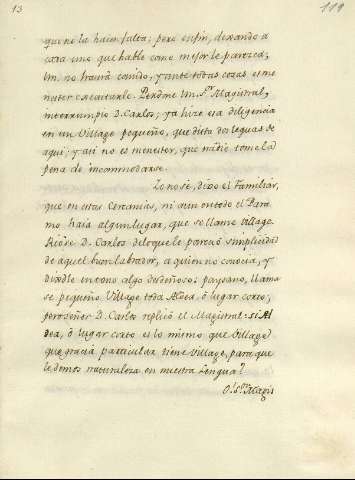 13
119
que no le hacia falta: pero en fin, dexando a
cada uno que hable como mejor le parezca,
Vm. no traerá comido, y ante todas cosas es me
nester calentarle. Perdone Vm. Sr. Magistral,
interrumpio D. Carlos, ya hize esa diligencia
en un Village pequeño, que dista dos leguas de
aqui; y asi no es menester, que nadie tome la
pena de incommodarse.
Yo no sé, dixo el familiar,
que en estas Cercanias, ni aun en todo el Para
mo haia algun lugar, que se llame Village.
Riose D. Carlos de lo que le pareció simplicidad
de aquel buen labrador, a quien no conocia, y
dixole en tono algo desdeñoso: paysano, llama
se pequeño Village toda Aldea, ó lugar corto,
pero señor D. Carlos replicó el Magistral: si Al
dea, ó lugar corto es lo mismo que Village
que gracia particular tiene Village, para que
le demos naturaleza en nuestra Lengua?
O! Sr. Magis